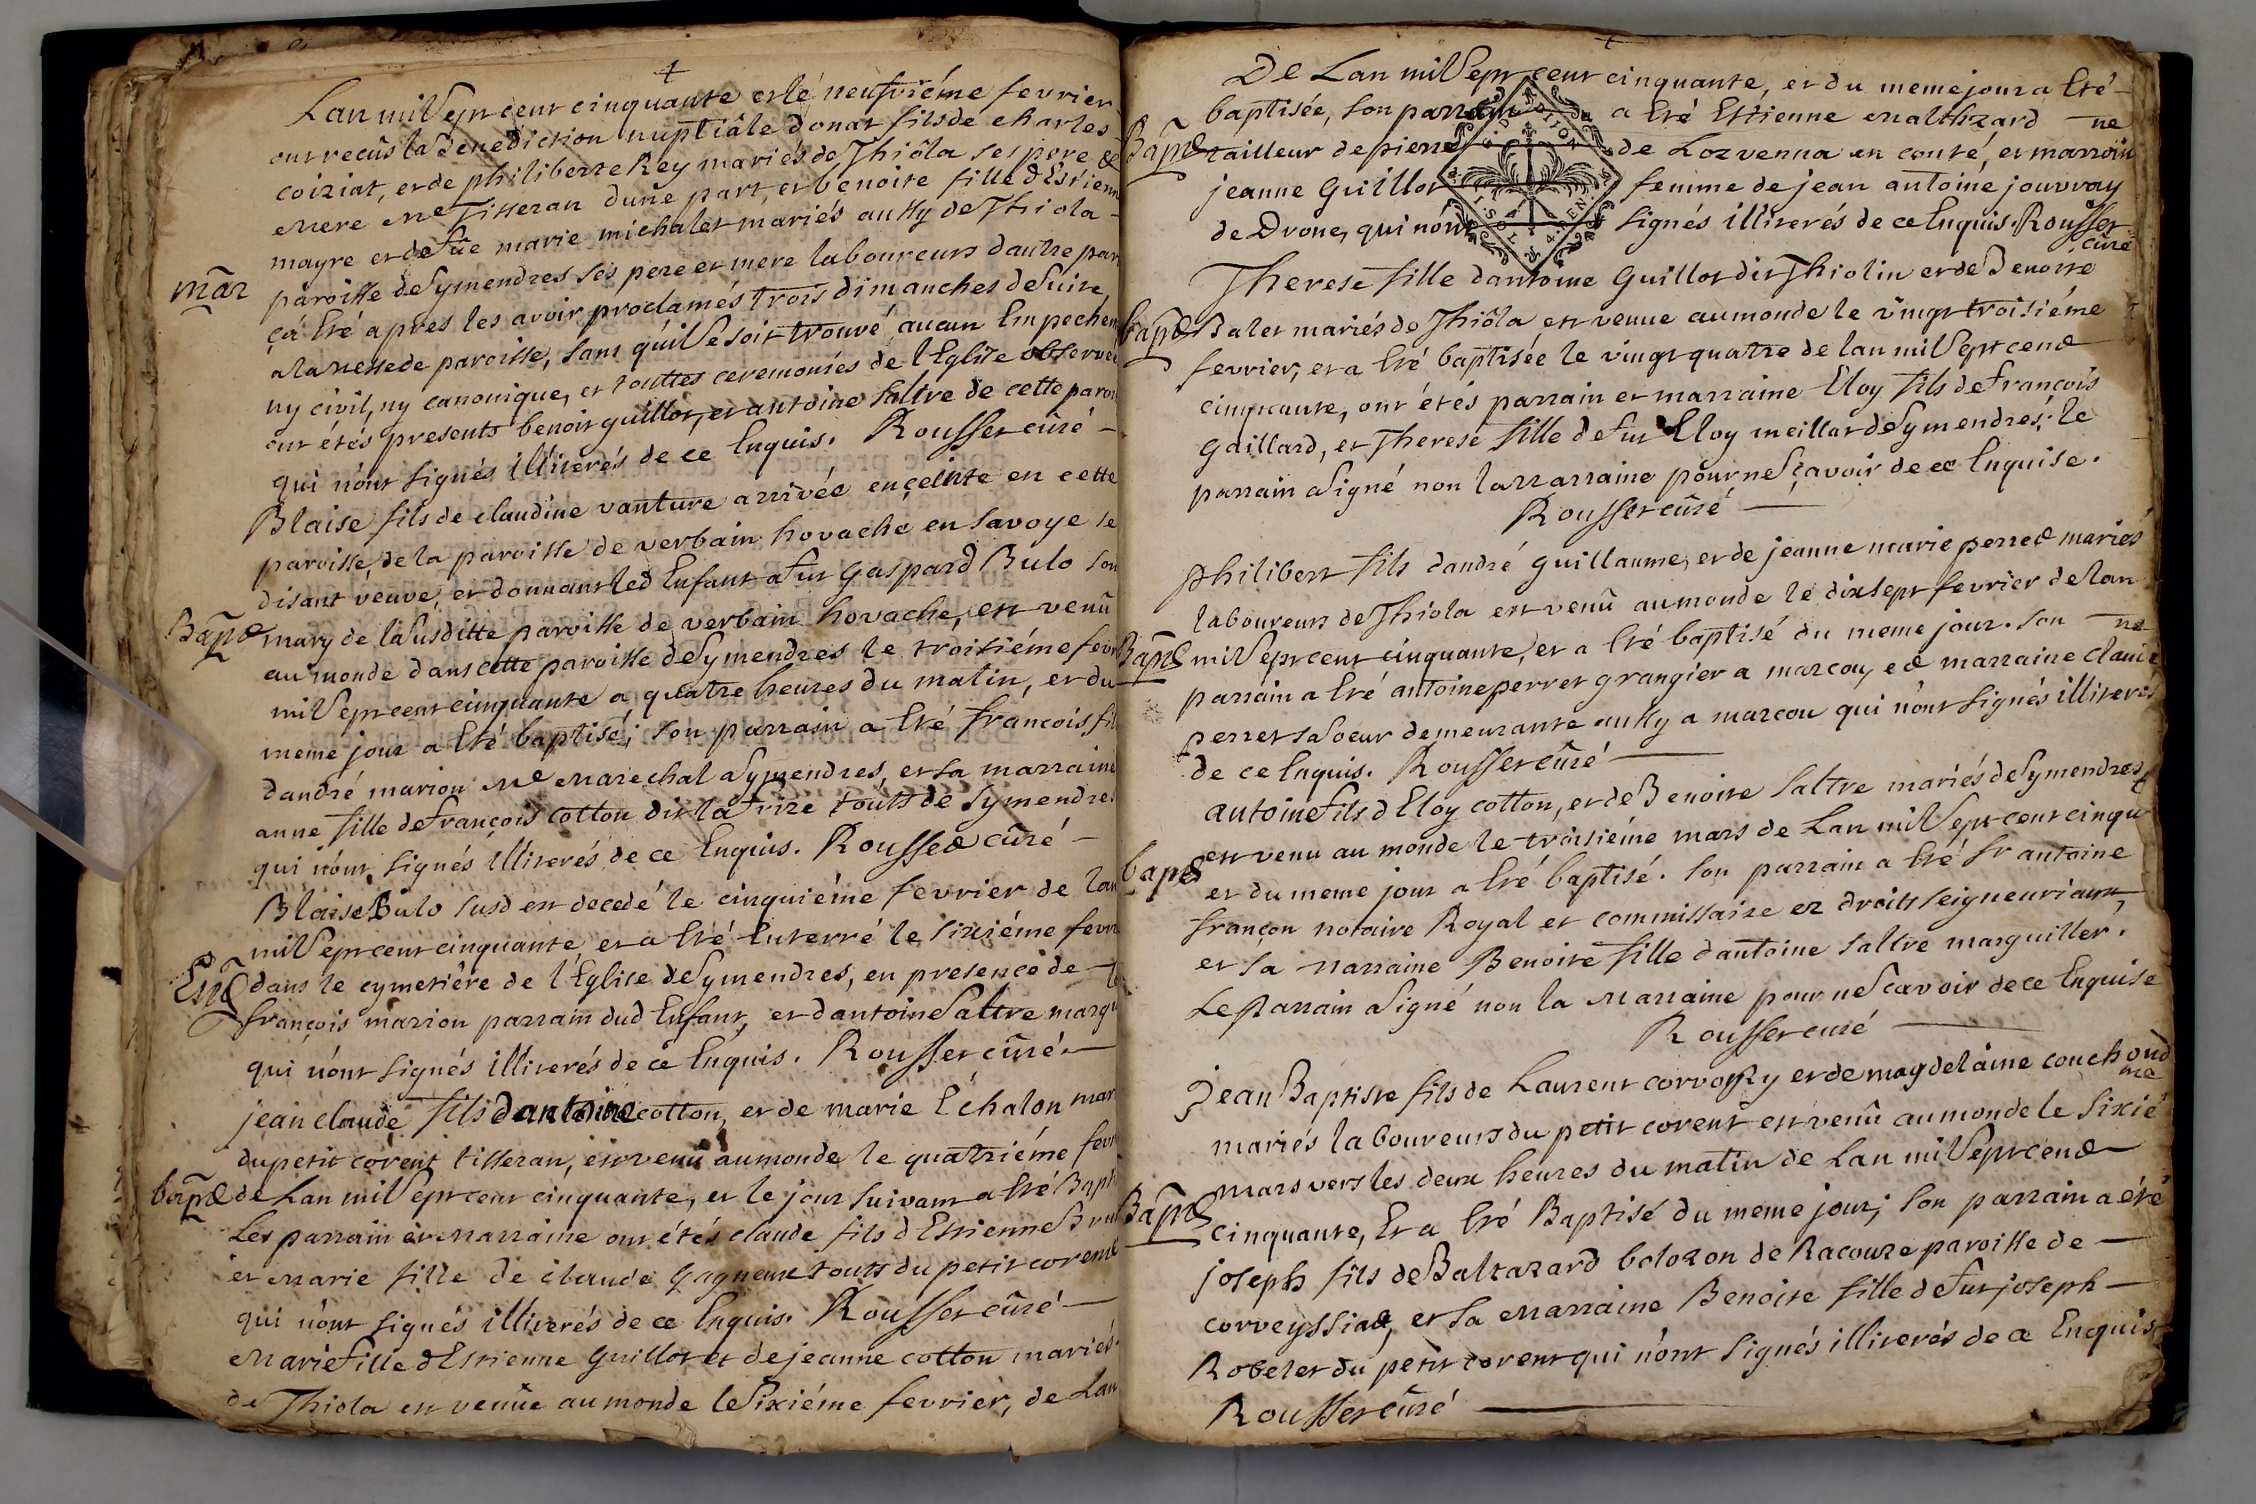 +
Lan mil sept cent cinquante et lé neufviéme fevrier
ont recûs la Benediction nuptiâle donat fils de charles
coiziat, et de philiberte Rey mariés de Thiôla ses pere &
mere me Tisseran dune part, et benoite fille dEstienne
mayre et de füe marie michalet mariés au Ky de Thiola
mar
paroisse de Symendres ses pere et mere laboureurs dautre part
ça été apres les avoir proclamés trois dimanches de suite
a la messe de paroisse, sans qu'il se soit trouvé aucun Empechem
ny civil, ny canonique, et touttes ceremonies de l'Eglise observées
ont étés presents benoit guillot, et antoine saltre de cette parois
qui n'ont signés illiterés de ce Enquis. Rousset curé
Blaise fils de claudine vanture arrivée enceinte en cette
paroisse, de la paroisse de verbain hovache en savoye se
disant veuve, et donnant led Enfant a fut Gaspard Bulo son
Bapt
mary de la susditte paroisse de verbain hovache, est venû
au monde dans cette paroisse de Symendres le troisiéme fevr
mil sept cent cinquante a quatre heures du matin, et du
meme jour a été baptisé; son parrain a été francois fil
dandré marion me marechal a Symendres, et sa marraine
anne fille de françois cotton dit la frize touts de Symendres
qui n'ont signés illiterés de ce Enquis. Rousset curé
Blaise Bulo susd est decedé le cinquiéme fevrier de lan
mil sept cent cinquante et a été Enterré le sixiéme fevri
dans le cymetiére de l'Eglise de Symendres, en presence de
françois marion parrain dud Enfant, et dantoine saltre margu
qui n'ont signés illiterés de ce Enquis. Rousset curé
jean claude fils dantoine cotton, et de marie Échalon mar
du petit corent tisseran, est venu au monde le quatriéme fevri
bapt
de Lan mil sept cent cinquante, et le jour suivant a été Bapt
Les parrain et marraine ont étés claude fils dEstienne
et marie fille de claude gagneux touts du petit corent
qui n'ont signés illiterés de ce Enquis. Rousset curé
Marie fille dEstienne Guillot et de jeanne cotton mariés
de Thiola est venûe au monde le sixiéme fevrier, de Lan
+
De Lan mil sept cent cinquante, et du meme jour a été
baptisée, son parrain a été Estienne me
Bapt
tailleur de pierre de en comté, et marrain
jeanne Guillot femme de jean antoine jouvray
de Drone, qui n'ont signés illiterés de ce Enquis. Rousset
curé
Therese fille dantoine Guillot dit Thiolin et de Benoite
bapt
Balet mariés de Thiôla est venue au monde le vingt troisiéme
fevrier, et a été baptisée le vingt quatre de lan mil sept cent
cinquante, ont étés parrain et marraine Eloy fils de françois
Gaillard, et Therese fille de fut Eloy meillat de Symendres; le
parrain a signé non la marraine pour ne sçavoir de ce Enquise.
Rousset curé
Philibert fils dandré guillaume, et de jeanne marie perret mariés
laboureurs de Thiola est venû au monde le dix sept fevrier de lan
Bapt
mil sept cent cinquante, et a été baptisé du meme jour. son
parrain a été antoine perret grangier a marcou, et marraine
perret sa soeur demeurante au Ky a marcou qui n'ont signés illiterés
de ce Enquis. Rousset curé
antoine fils dEloy cotton, et de Benoite saltre mariés de Symendres
est venu au monde le troisiéme mars de Lan mil sept cent cinqu
bapt
et du meme jour a été baptisé. son parrain a été sr antoine
françon notaire Royal et commissaire ez droits seigneuriaux,
et sa marraine Benoite fille dantoine saltre marguiller.
Le parrain a signé non la marraine pour ne scavoir de ce Enquise
Rousset curé
Jean Baptiste fils de Laurent et de magdelaine couchoud
mariés laboureurs du petit corent est venû au monde le sixié
me
mars vers les deux heures du matin de Lan mil sept cent
Bapt
cinquante, Et a été Baptisé du meme jour; son parrain a été
joseph fils de Baltazard bolozon de Racouze paroisse de
corveyssiat, et sa marraine Benoite fille de fut joseph
Robelet du petit corent qui n'ont signés illiterés de ce Enquis
Rousset curé